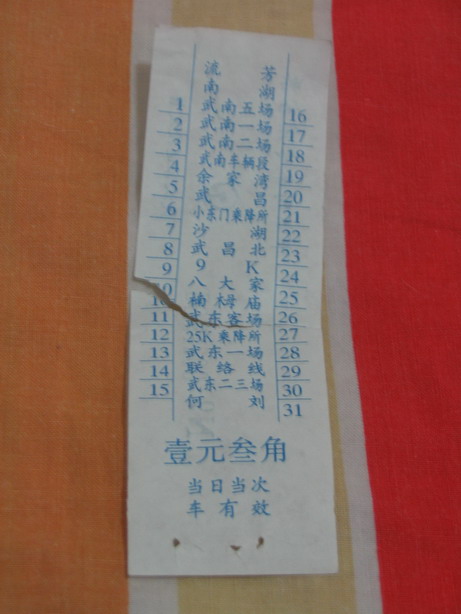 流芳
南湖
1 武南五场 16
2 武南一场 17
3 武南二场 18
4 武南车辆段 19
5 余家湾 20
武昌
6 小东门乘降所 21
7 沙湖 22
8 武昌北 23
9 9K 24
10 八大家 25
楠栂庙
11 武东客场 26
12 25K乘降所 27
13 武东一场 28
14 联络线 29
15 武东二三场 30
何刘 31
壹元叁角
当日当次
车有效